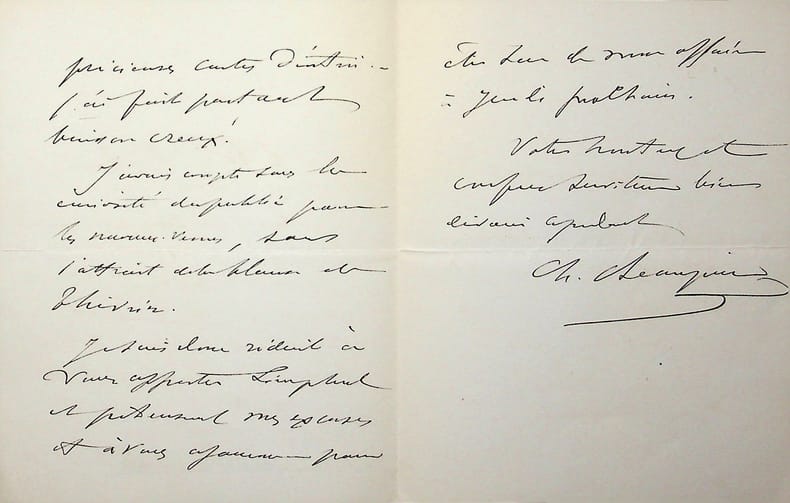 précieuses cartes d'entrée -
j'ai fait partout
buisson creux!
J'avais compté sans la
curiosité du public pour
les nouveaux venus, sans
l'attrait de la blouse de
Thivrier.
Je suis donc réduit à
vous apporter simplement
et piteusement mes excuses
et à vous ajourner pour
affaire
à jeudi prochain.
Votre honteux et
confus serviteur bien